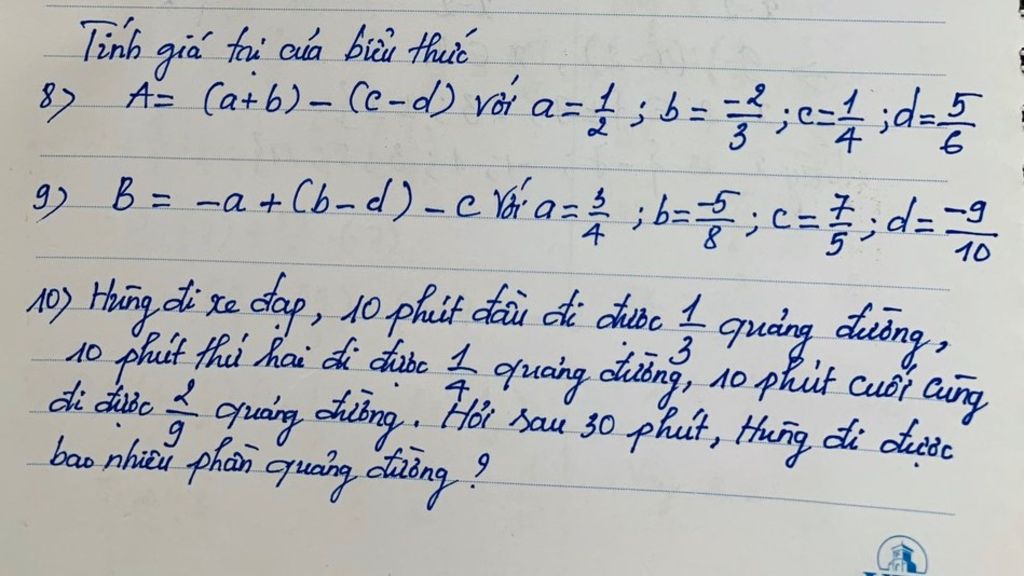 Tính giá trị của biểu thức
8) A = (a+b) - (c-d) với a = 1/2 ; b = -2/3 ; c = 1/4 ; d = 5/6
9) B = -a + (b-d) - c Với a = 3/4 ; b = -5/8 ; c = 7/5 ; d = -9/10
10) Hùng đi xe đạp, 10 phút đầu đi được 1/3 quảng đường,
10 phút thứ hai đi được 1/4 quảng đường, 10 phút cuối cùng
đi được 2/9 quảng đường. Hỏi sau 30 phút, Hùng đi được
bao nhiêu phần quảng đường ?